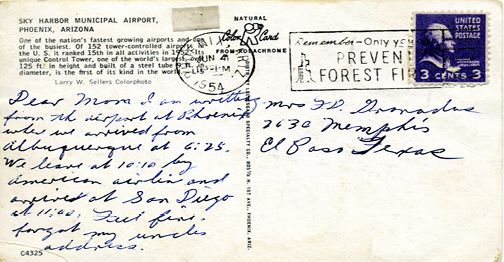 SKY HARBOR MUNICIPAL AIRPORT,
PHOENIX, ARIZONA
One of the nation's fastest growing airports and one
of the busiest. Of 152 tower-controlled airports
the U. S. it ranked 15th in all activities in 1952. Its
unique Control Tower, one of the world's largest,
125 ft. in height and built of a steel tube 9 ft. in
diameter, is the first of its kind in the world.
Larry W. Sellers Colorphoto
Dear Mom I am writing
from the airport at Phoenix
where we arrived from
Albuquerque at 6:25.
We leave at 10:10 by
American airlin and
arrived at San Diego
at 11:00. Feel fine.
forgot my uncles
address.
C4325
NATURAL
Color Card
FROM KODACHROME
LOLLESGARD SPECIALTY CO., PHOENIX, ARIZ.
JUN 4
1954
Remember - Only you
PREVENT
FOREST FIRES
UNITED
STATES
POSTAGE
3 CENTS 3
Mrs F.D. Granados
2630 Memphis
El Paso Texas